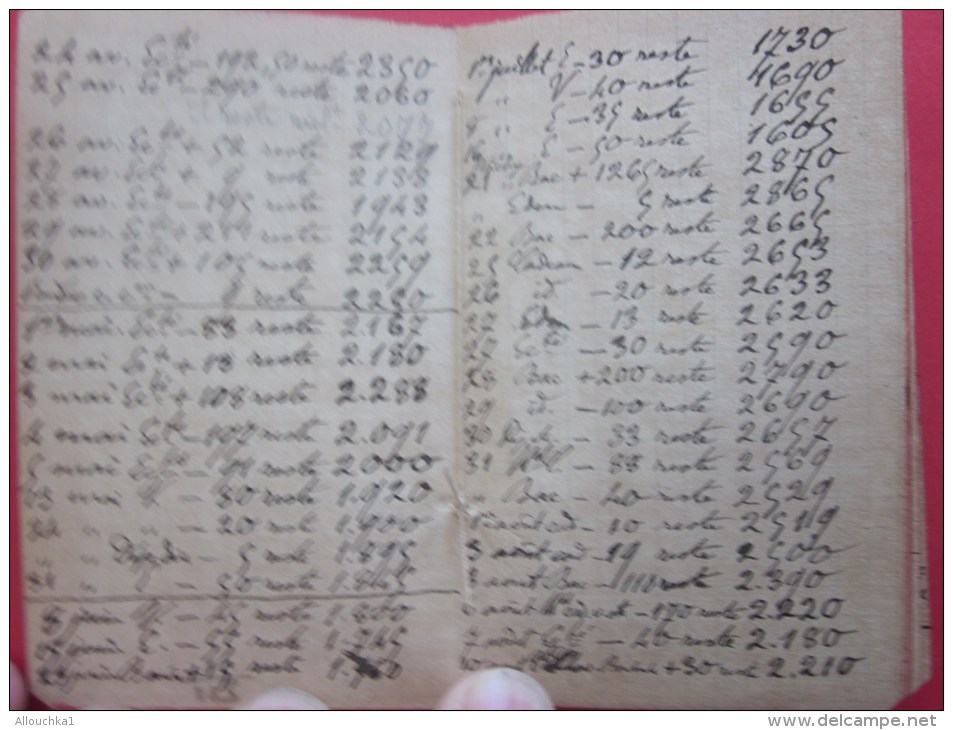 24 av. Scté - 192,50 reste 2350
25 av. Scté - 290 reste 2060
26 av. Scté + 52 reste
27 av. Scté + 9 reste 2138
28 av. Scté - 195 reste 1943
29 av. Scté + 211 reste 2154
30 av. Scté + 105 reste 2259
reste 2250
1er mai. Scté - 88 reste 2162
2 mai Scté + 18 reste 2.180
3 mai Scté + 108 reste 2.288
4 mai Scté - 197 reste 2.091
5 mai Scté - 91 reste 2000
mai V. - 80 reste 1.920
" " - 20 reste 1.900
" - 5 reste 1.895
31 " - 50 reste 1.845
juin V. - 45 reste 1.800
juin E. - 55 reste 1.745
juin reste
1er juillet E - 30 reste 1730
" V - 40 reste 1690
" E - 35 reste 1655
E - 50 reste 1605
21 " Bac + 1265 reste 2870
" Eden - 5 reste 2865
22 Bac - 200 reste 2665
25 - 12 reste 2653
26 id - 20 reste 2633
27 Eden - 13 reste 2620
27 Scté - 30 reste 2590
28 Bac + 200 reste 2790
29 id. - 100 reste 2690
30 - 33 reste 2657
31 - 88 reste 2569
" Bac - 40 reste 2529
1er août id - 10 reste 2519
3 août id - 19 reste 2500
3 août Bac - 110 reste 2.390
août id - 170 reste 2.220
7 août Scté - 40 reste 2.180
10 + 30 reste 2.210
Allouchka1
www.delcampe.net